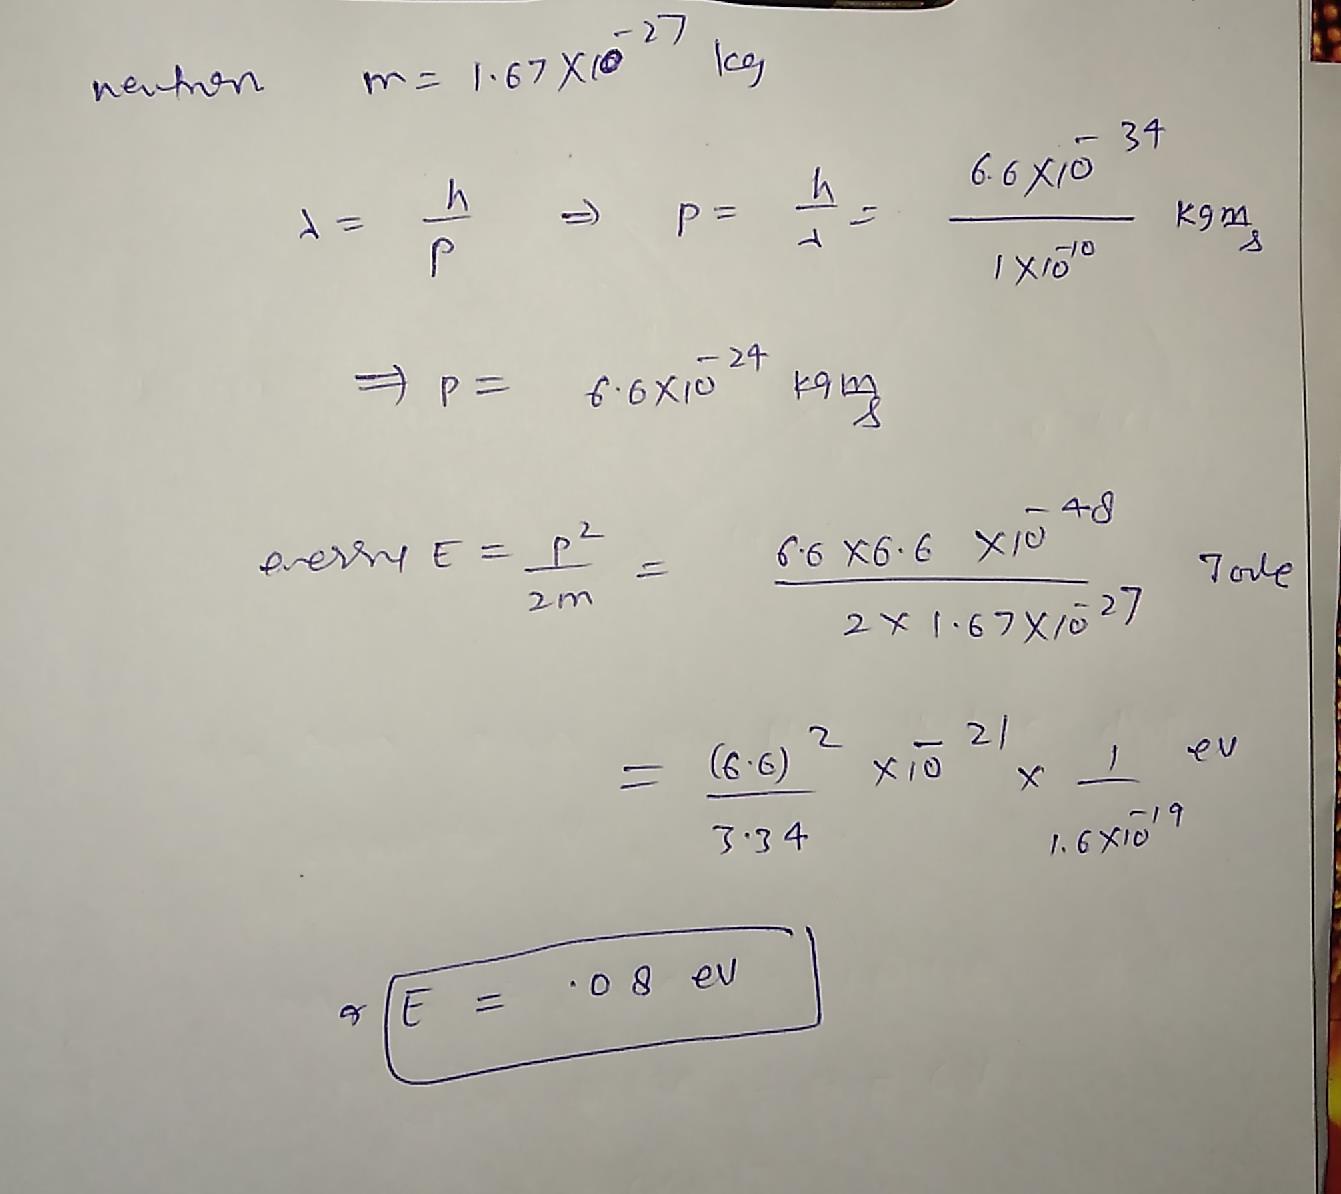 neutron m = 1.67 X 10^-27 kg
λ = h/p ⇒ p = h/λ = 6.6 X 10^-34 / 1 X 10^-10 kg m/s
⇒ p = 6.6 X 10^-24 kg m/s
energy E = p^2/2m = 6.6 X 6.6 X 10^-48 / 2 X 1.67 X 10^-27 Joule
= (6.6)^2/3.34 X 10^-21 X 1/1.6 X 10^-19 ev
or E = .08 ev